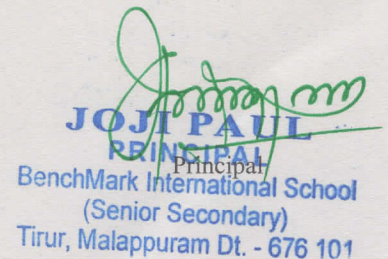 JOJI PAUL
PRINCIPAL
Principal
BenchMark International School
(Senior Secondary)
Tirur, Malappuram Dt. - 676 101